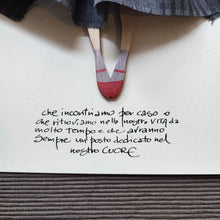 che incontriamo per caso o
che ritroviamo nella nostra vita da
molto tempo e che avranno
sempre un posto dedicato nel
nostro CUORE